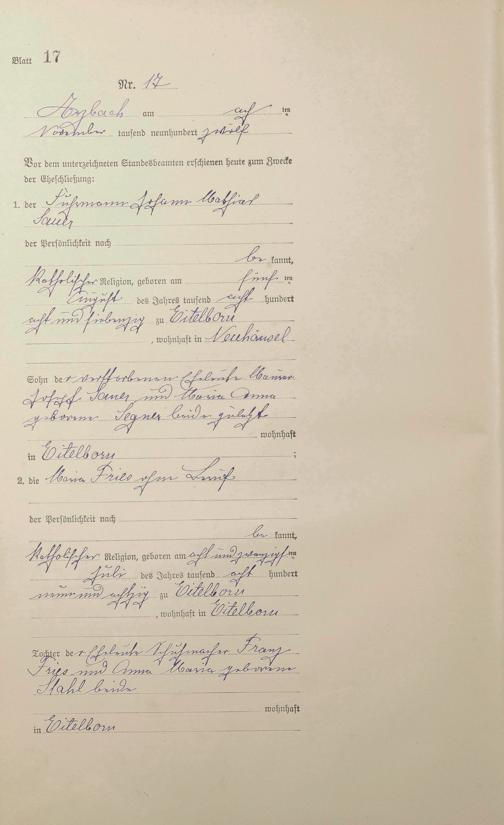 Blatt 17
Nr. 17
Arzbach am acht ten
November tausend neunhundert zwölf
Vor dem unterzeichneten Standesbeamten erschienen heute zum Zwecke
der Eheschließung:
1. der Fuhrmann Johann Mathias
Sauer
der Persönlichkeit nach
be kannt,
katholischer Religion, geboren am fünf ten
August des Jahres tausend acht hundert
acht und siebenzig zu Eitelborn
, wohnhaft in Neuhäusel
Sohn der verstorbenen Eheleute Maurer
Josef Sauer und Maria Anna
geborene Segner beide zuletzt
wohnhaft
in Eitelborn ;
2. die Maria Fries ohne Beruf
der Persönlichkeit nach
be kannt,
katholischer Religion, geboren am acht und zwanzigsten
Juli des Jahres tausend acht hundert
neun und achtzig zu Eitelborn
, wohnhaft in Eitelborn
Tochter der Eheleute Schuhmacher Franz
Fries und Anna Maria geborene
Stahl beide
wohnhaft
in Eitelborn